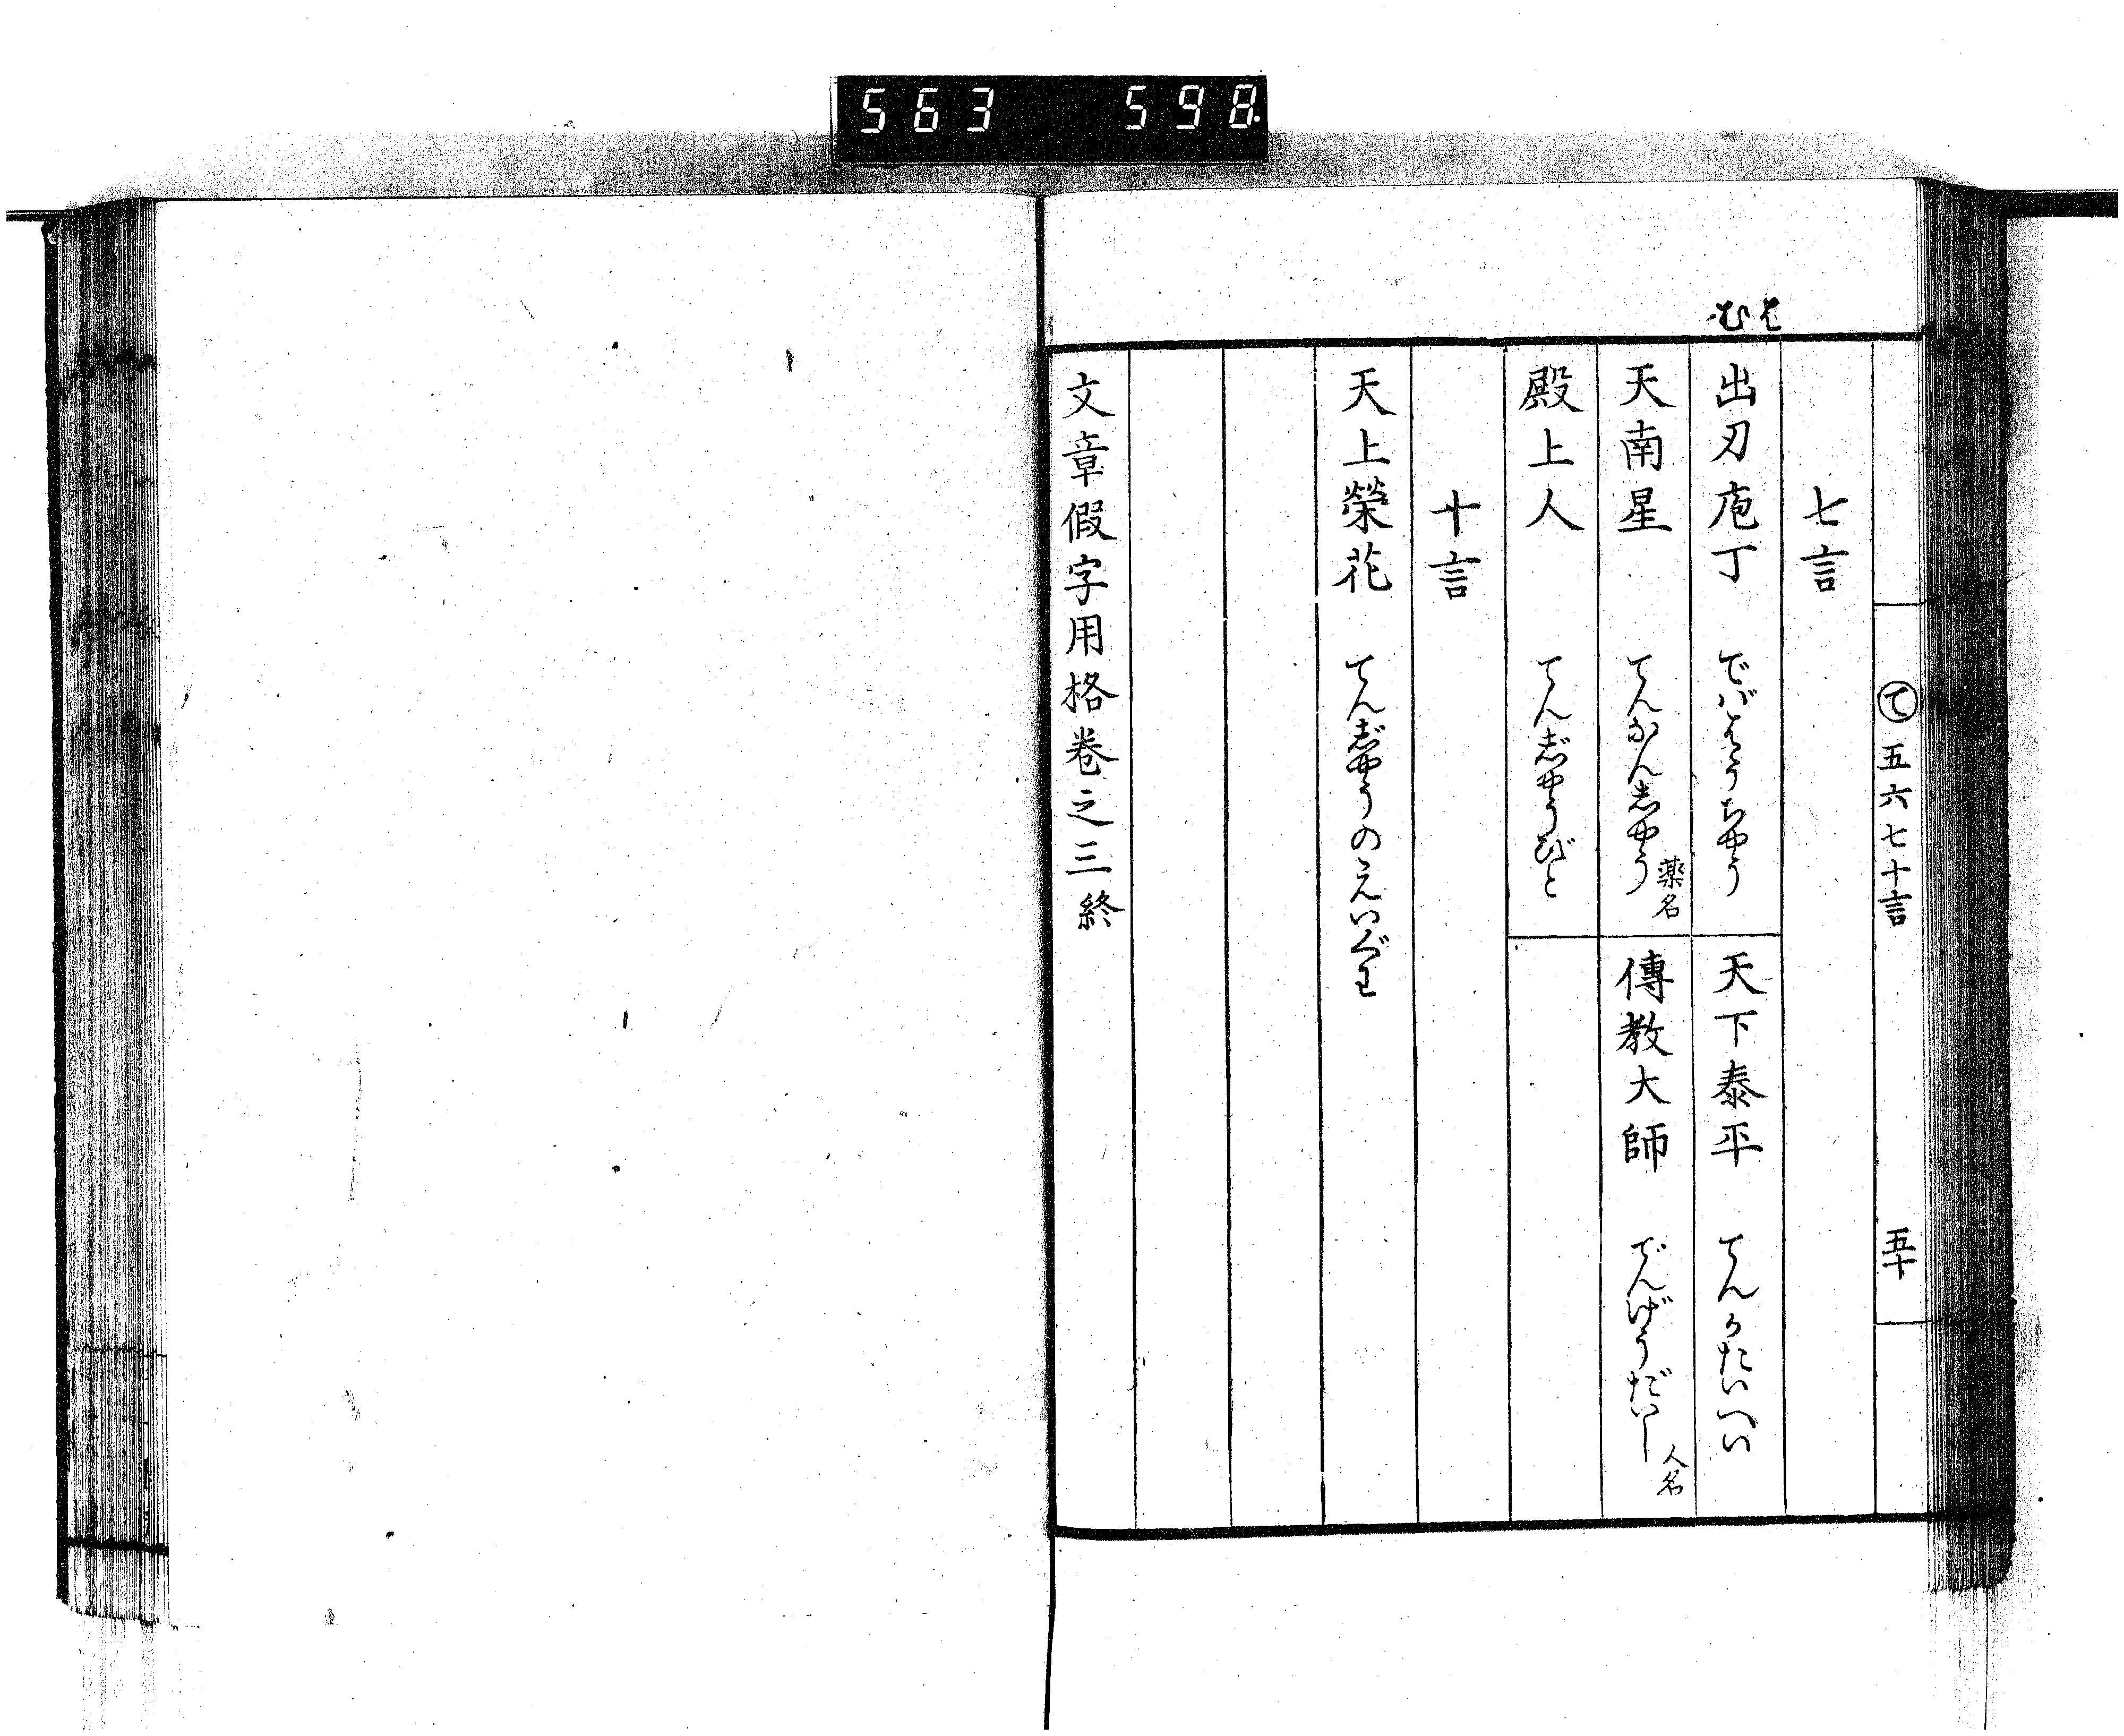 563 598
て 五六七十言 五十
七言
出刃庖丁 でバはうちやう
天下泰平 てんかたいへい
天南星 てんなんしやう 薬名
傳教大師 でんげうだいし 人名
殿上人 てんじやうびと
十言
天上榮花 てんじやうのえいぐわ
文章假字用格巻之三終